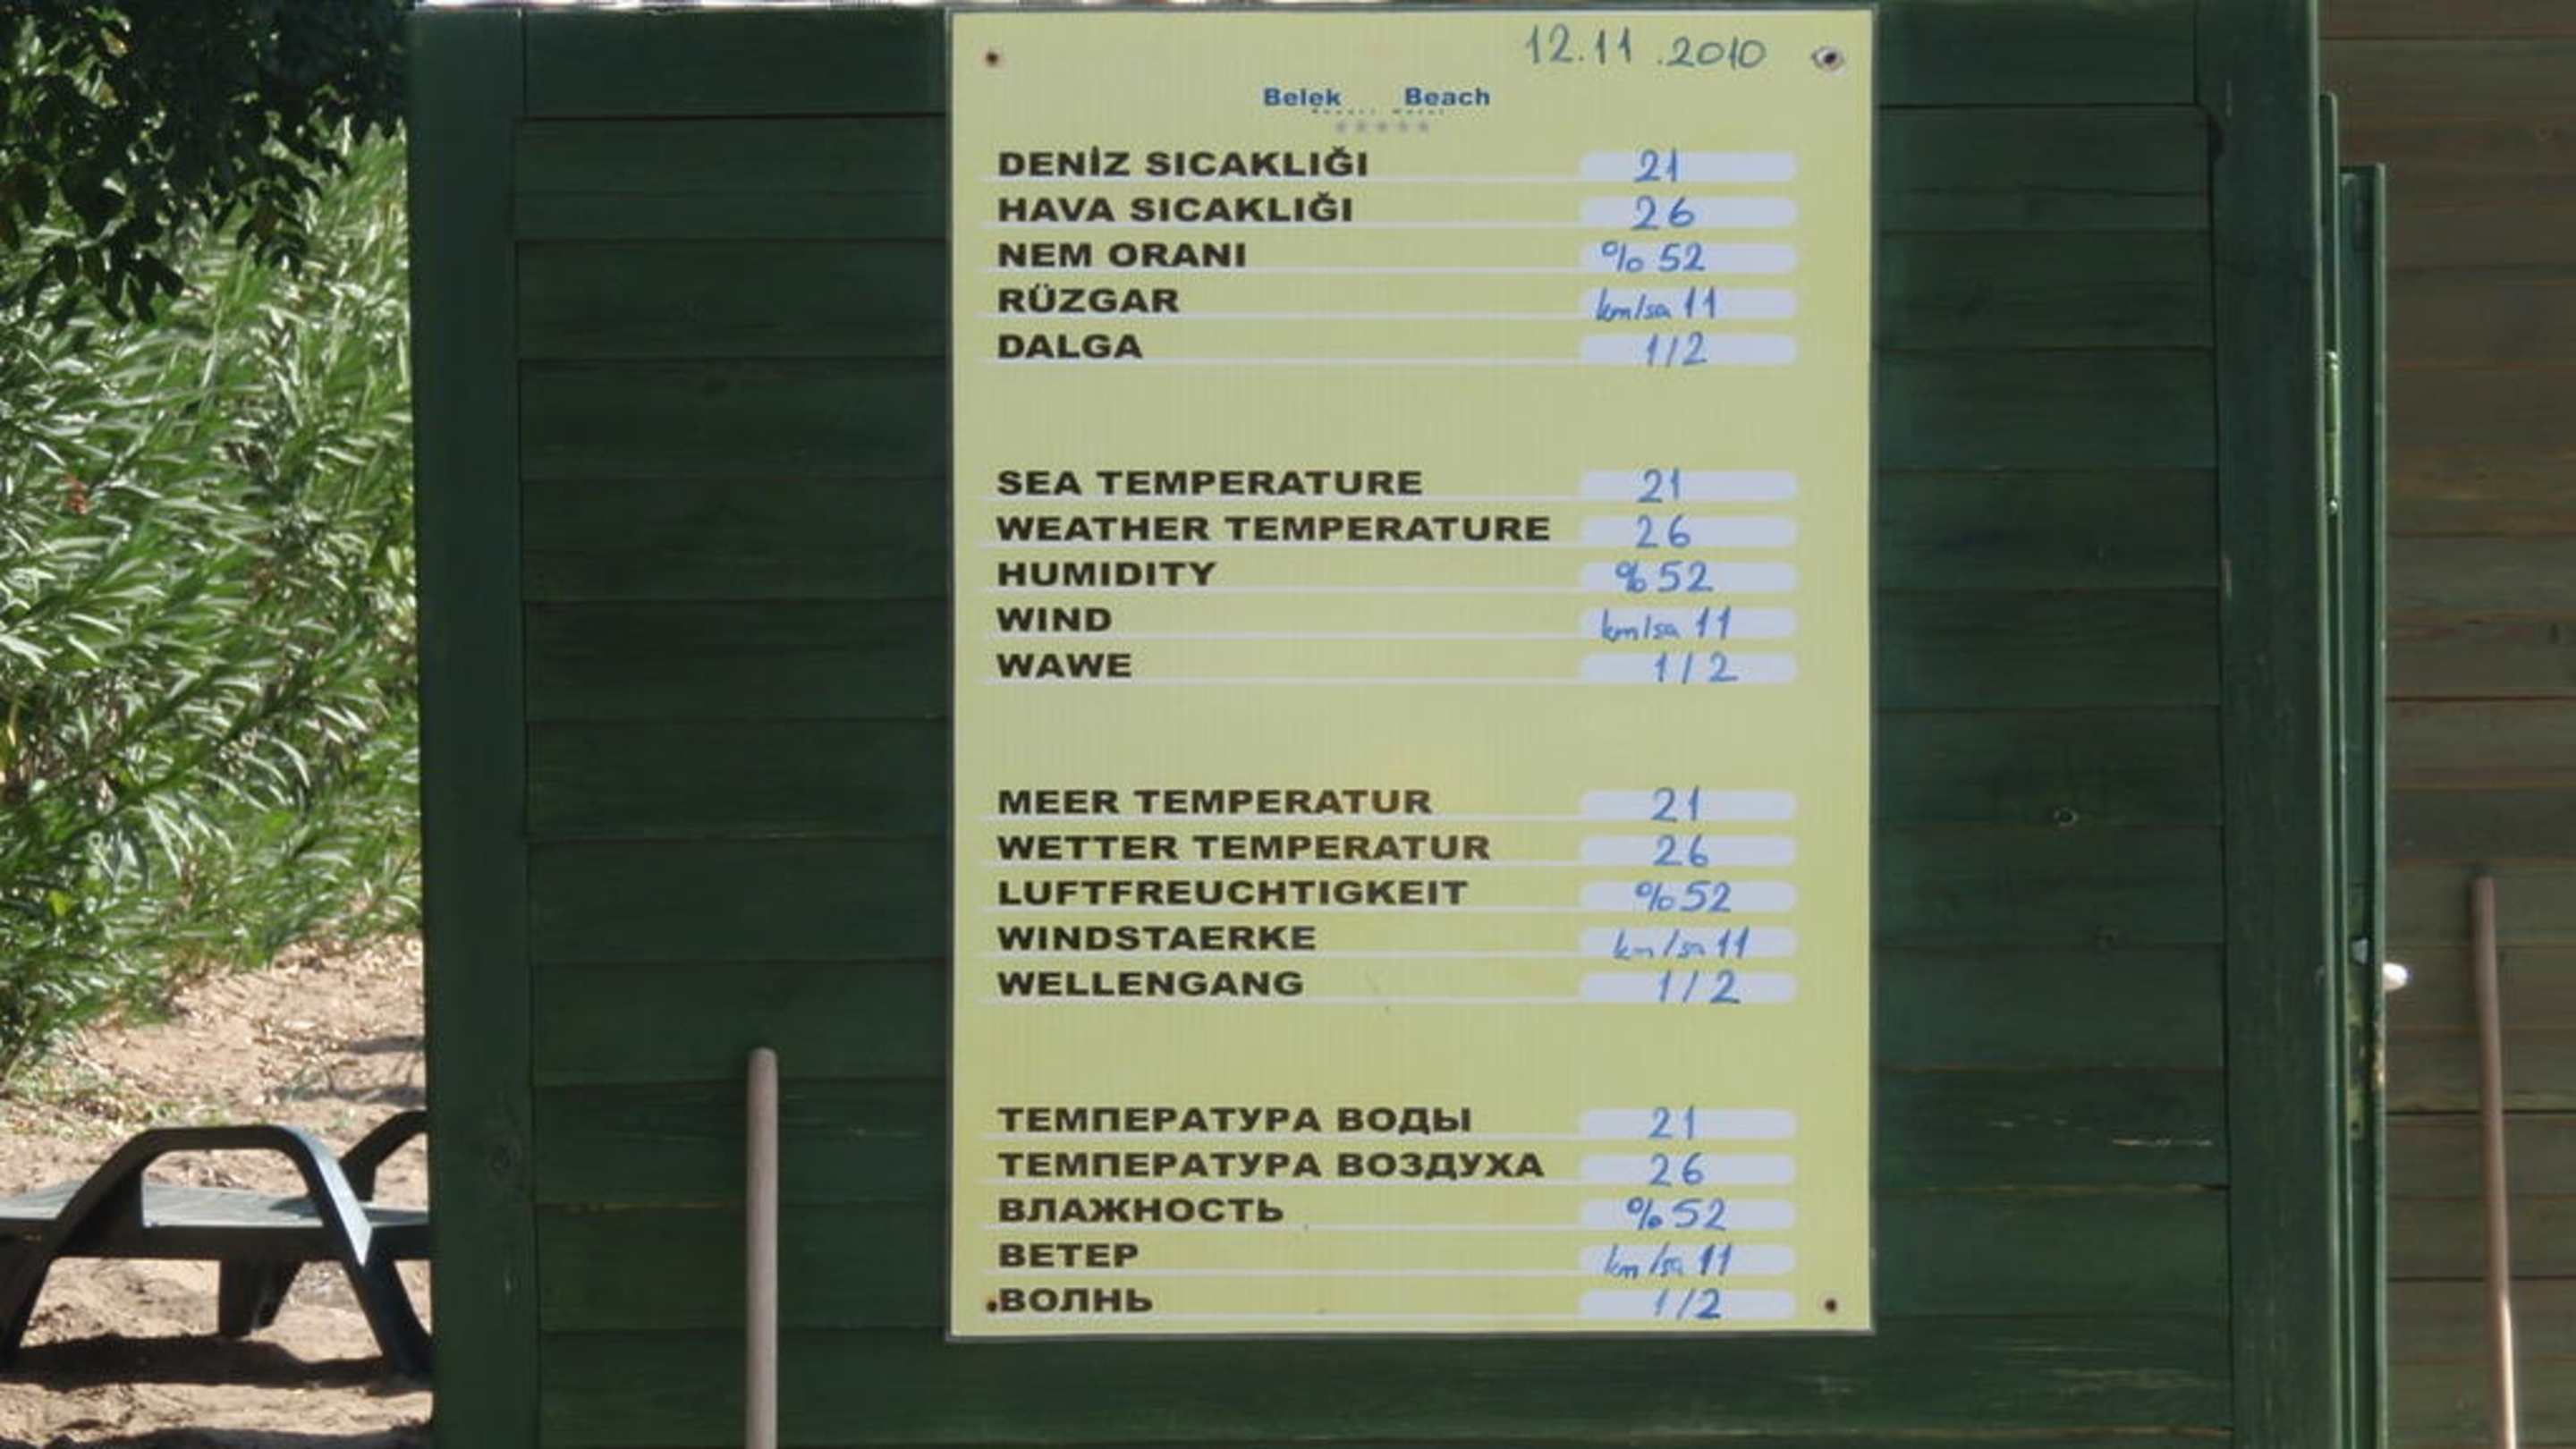 12.11.2010
Belek Beach
DENİZ SICAKLIĞI 21
HAVA SICAKLIĞI 26
NEM ORANI %52
RÜZGAR km/sa 11
DALGA 1/2
SEA TEMPERATURE 21
WEATHER TEMPERATURE 26
HUMIDITY %52
WIND km/sa 11
WAWE 1/2
MEER TEMPERATUR 21
WETTER TEMPERATUR 26
LUFTFREUCHTIGKEIT %52
WINDSTAERKE km/sa 11
WELLENGANG 1/2
ТЕМПЕРАТУРА ВОДЫ 21
ТЕМПЕРАТУРА ВОЗДУХА 26
ВЛАЖНОСТЬ %52
ВЕТЕР km/sa 11
ВОЛНЬ 1/2